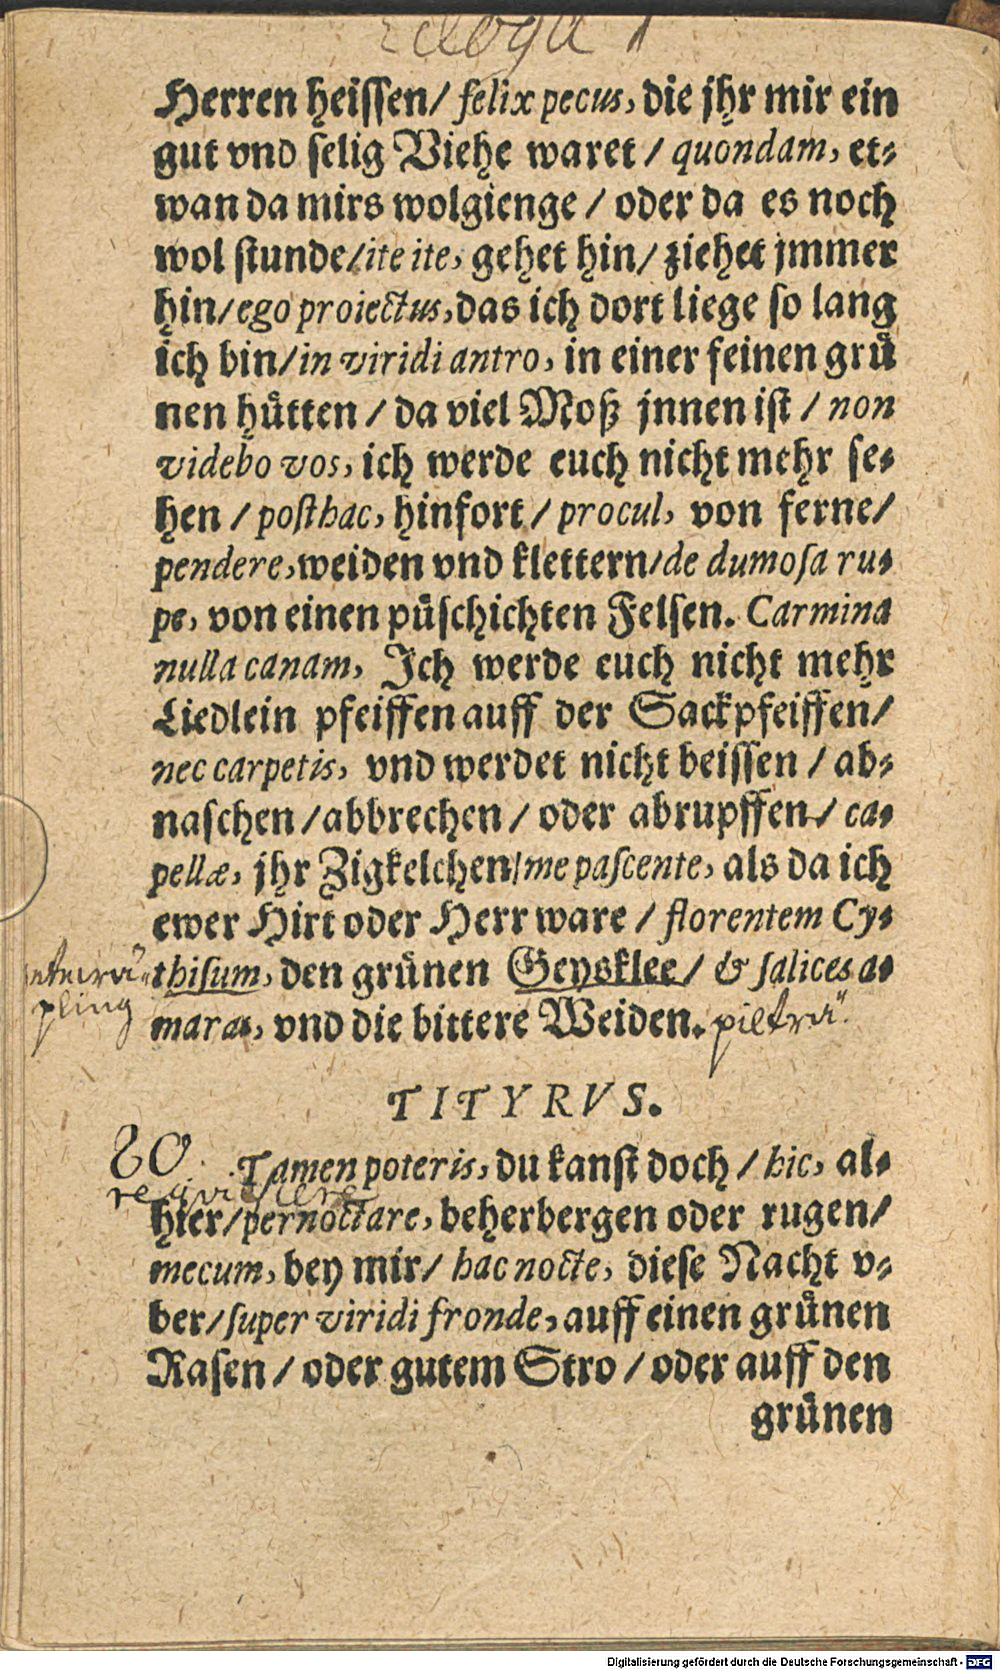 Ecloga 1
Herren heissen/ felix pecus, die jhr mir ein
gut vnd selig Viehe waret/ quondam, et⸗
wan da mirs wolgienge/ oder da es noch
wol stunde/ite ite, gehet hin/ ziehet jmmer
hin/ego proiectus,das ich dort liege so lang
ich bin/in viridi antro, in einer feinen gruͤ
nen huͤtten/ da viel Moß jnnen ist/ non
videbo vos, ich werde euch nicht mehr se⸗
hen/ posthac, hinfort/ procul, von ferne/
pendere,weiden vnd klettern/de dumosa ru⸗
pe, von einen puͤschichten Felsen. Carmina
nulla canam, Ich werde euch nicht mehr
Liedlein pfeiffen auff der Sackpfeiffen/
nec carpetis, vnd werdet nicht beissen/ ab⸗
naschen/abbrechen/ oder abrupffen/ ca⸗
pellæ, jhr Zigkelchen/me pascente, als da ich
ewer Hirt oder Herr ware/ florentem Cy⸗
thisum, den gruͤnen Geysklee/ & salices a⸗
maras, vnd die bittere Weiden.
pling
TITYRVS.
80
Tamen poteris, du kanst doch/ hic, al⸗
hier/pernoctare, beherbergen oder rugen/
mecum, bey mir/ hac nocte, diese Nacht v⸗
ber/super viridi fronde, auff einen gruͤnen
Rasen/ oder gutem Stro/ oder auff den
gruͤnen
Digitalisierung gefördert durch die Deutsche Forschungsgemeinschaft - DFG